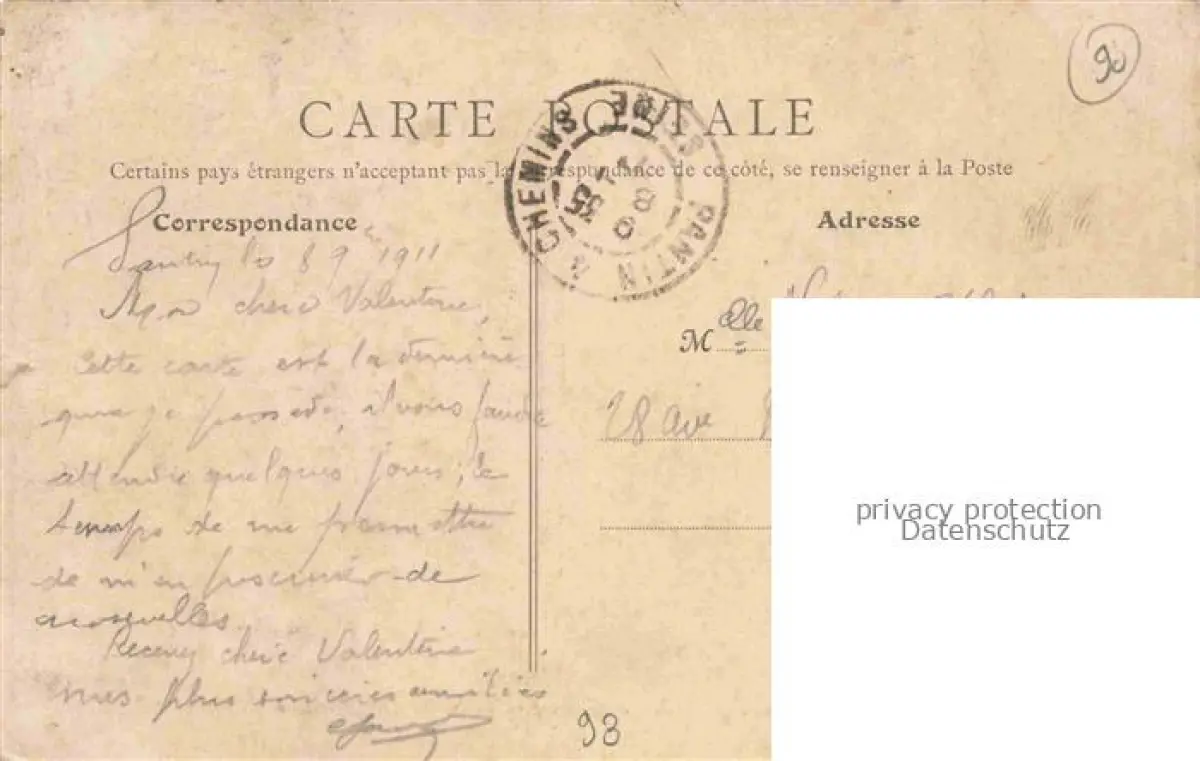 90
CARTE POSTALE
Certains pays étrangers n'acceptant pas la correspondance de ce côté, se renseigner à la Poste
4 CHEMINS PANTIN SEINE
Correspondance
le 8 9 1911
Mon cherie Valentine,
Cette carte est la dernière
que je possède, il vous faudra
attendre quelques jours, le
temps de me permettre
de m'en procurer de
nouvelles.
Recevez cherie Valentine
mes plus sincères amitiés
98
Adresse
Melle
28 Ave
privacy protection
Datenschutz